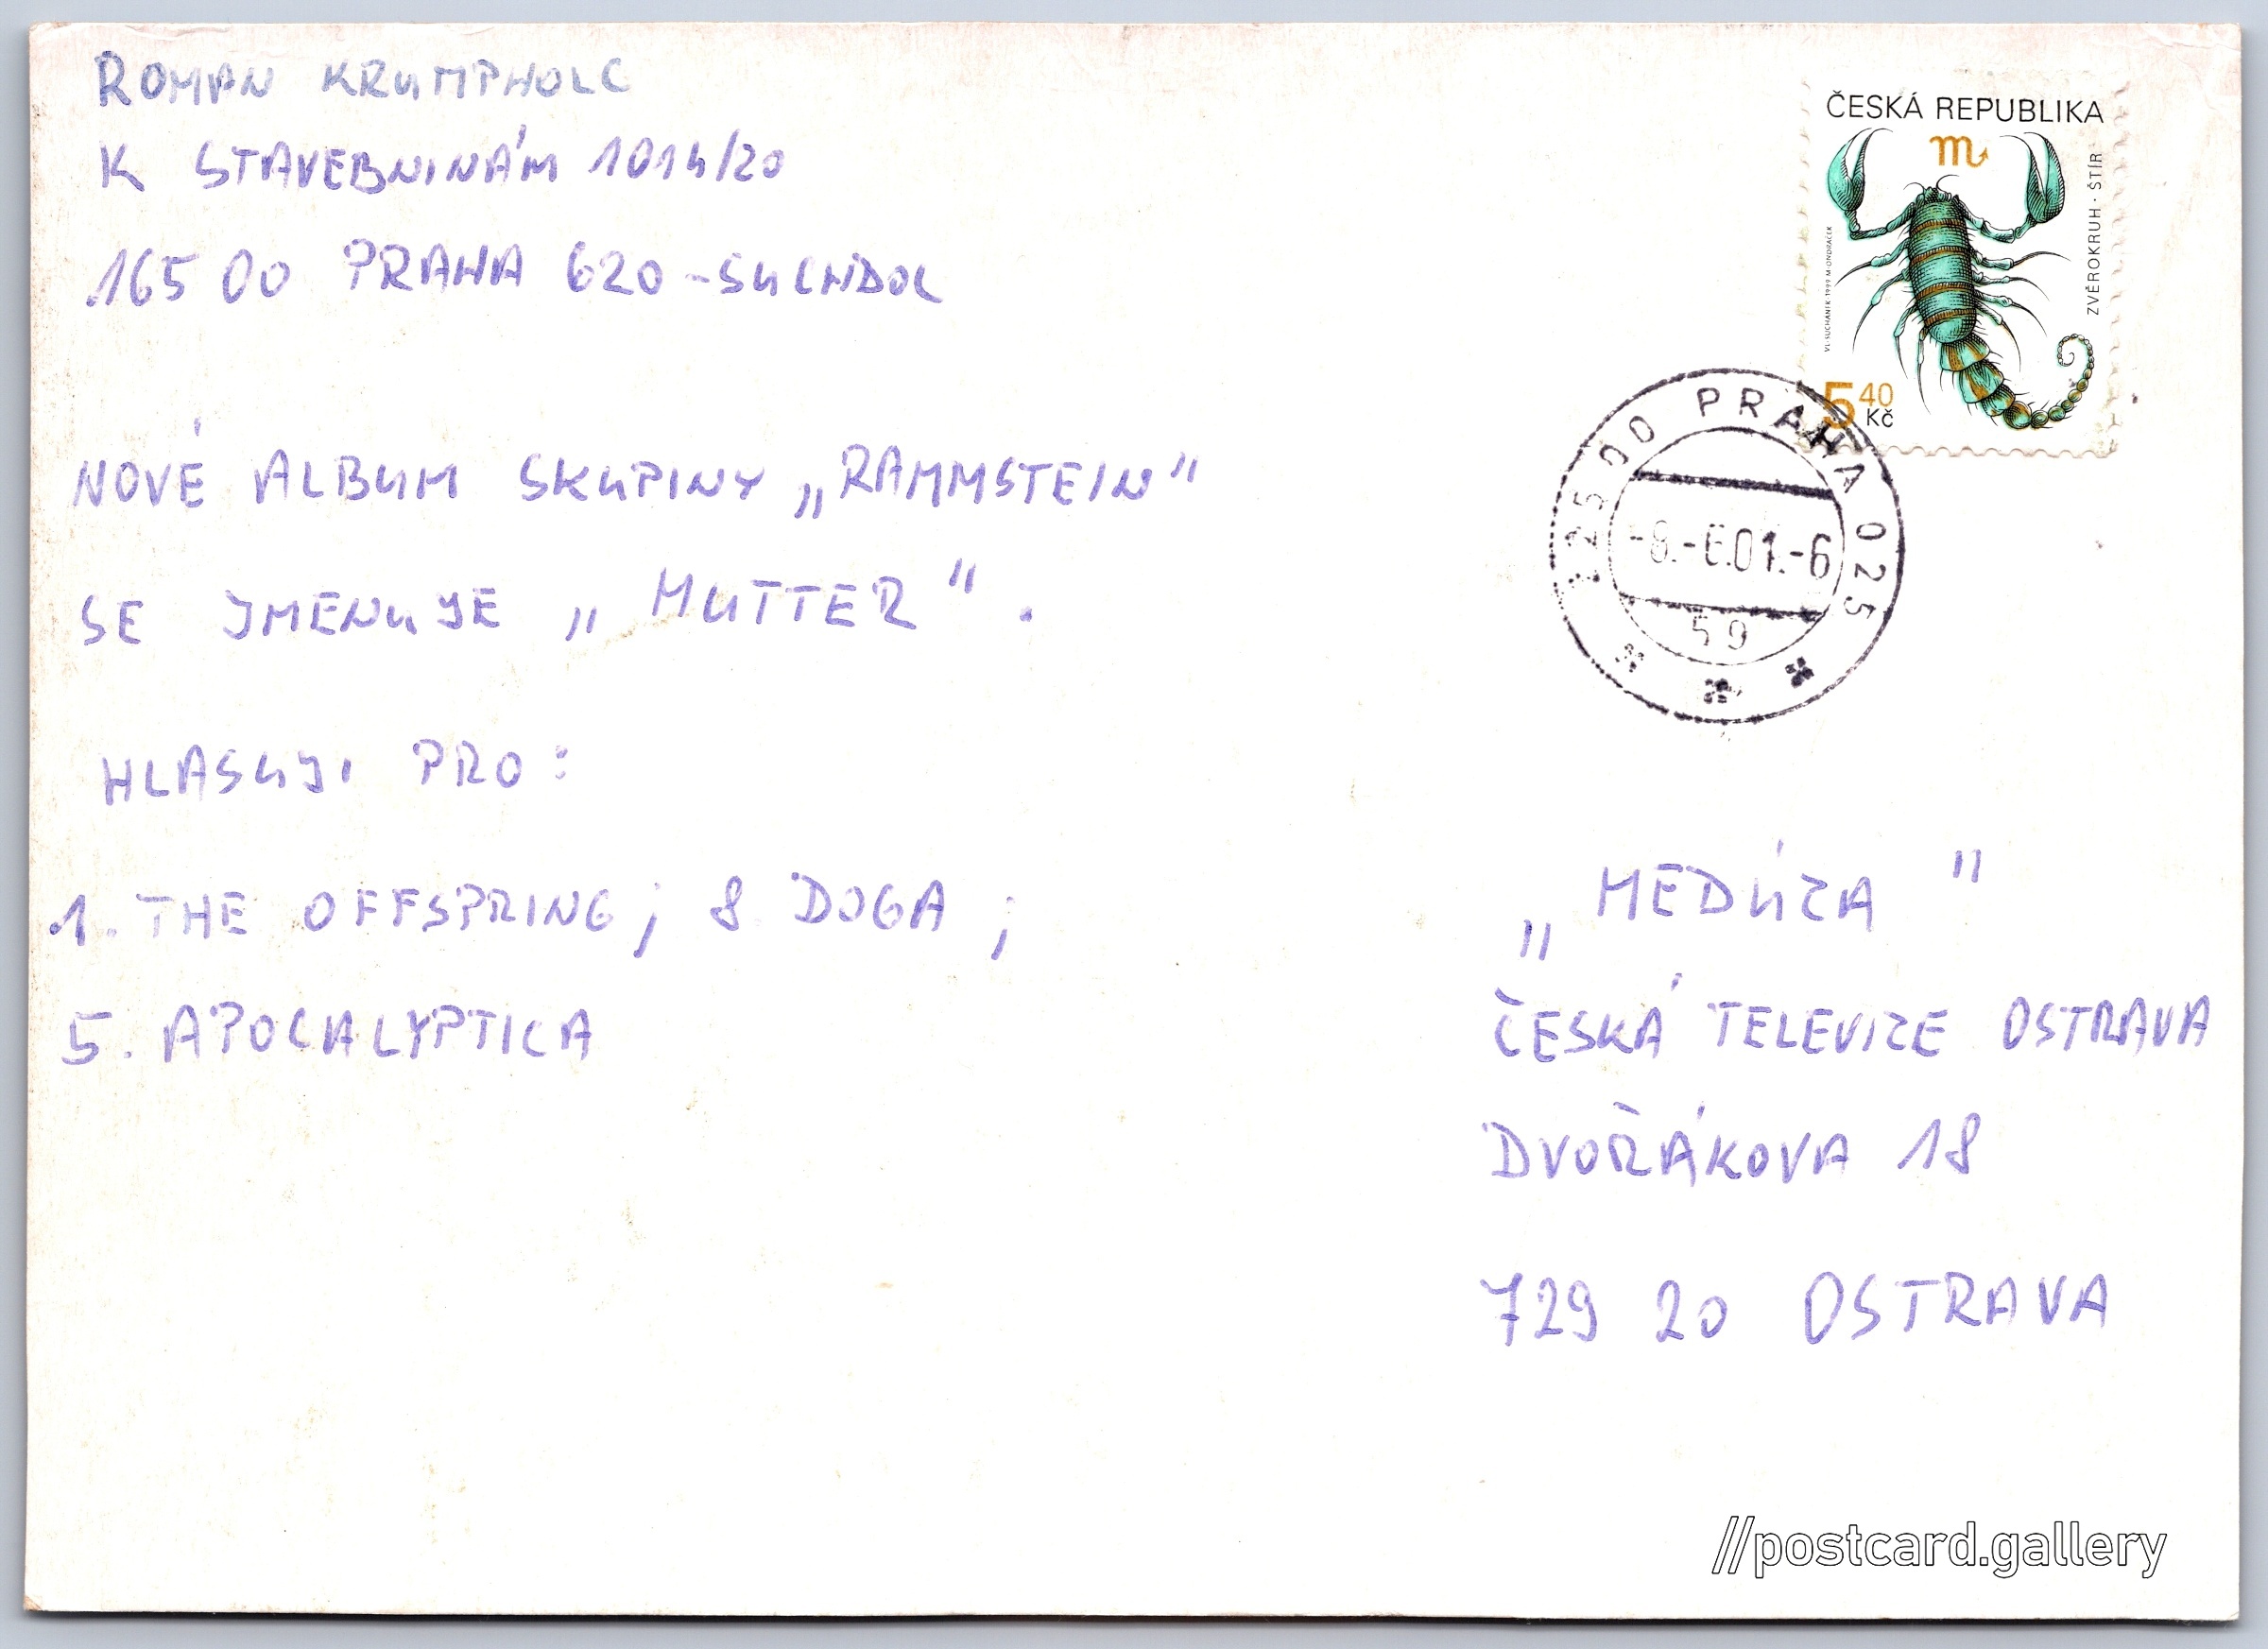 ROMAN KRUMPHOLC
K STAVEBNINÁM 1014/20
165 00 PRAHA 620 - SUCHDOL
NOVÉ ALBUM SKUPINY „RAMMSTEIN"
SE JMENUJE „MUTTER".
HLASUJI PRO:
1. THE OFFSPRING; 8 DOGA;
5. APOCALYPTICA
ČESKÁ REPUBLIKA
ZVĚROKRUH - ŠTÍR
VL. SUCHÁNEK 1999 M. ONDRÁČEK
5 40 Kč
125 00 PRAHA 025
01.-6
59
„MEDÚZA"
ČESKÁ TELEVIZE OSTRAVA
DVOŘÁKOVA 18
729 20 OSTRAVA
//postcard.gallery